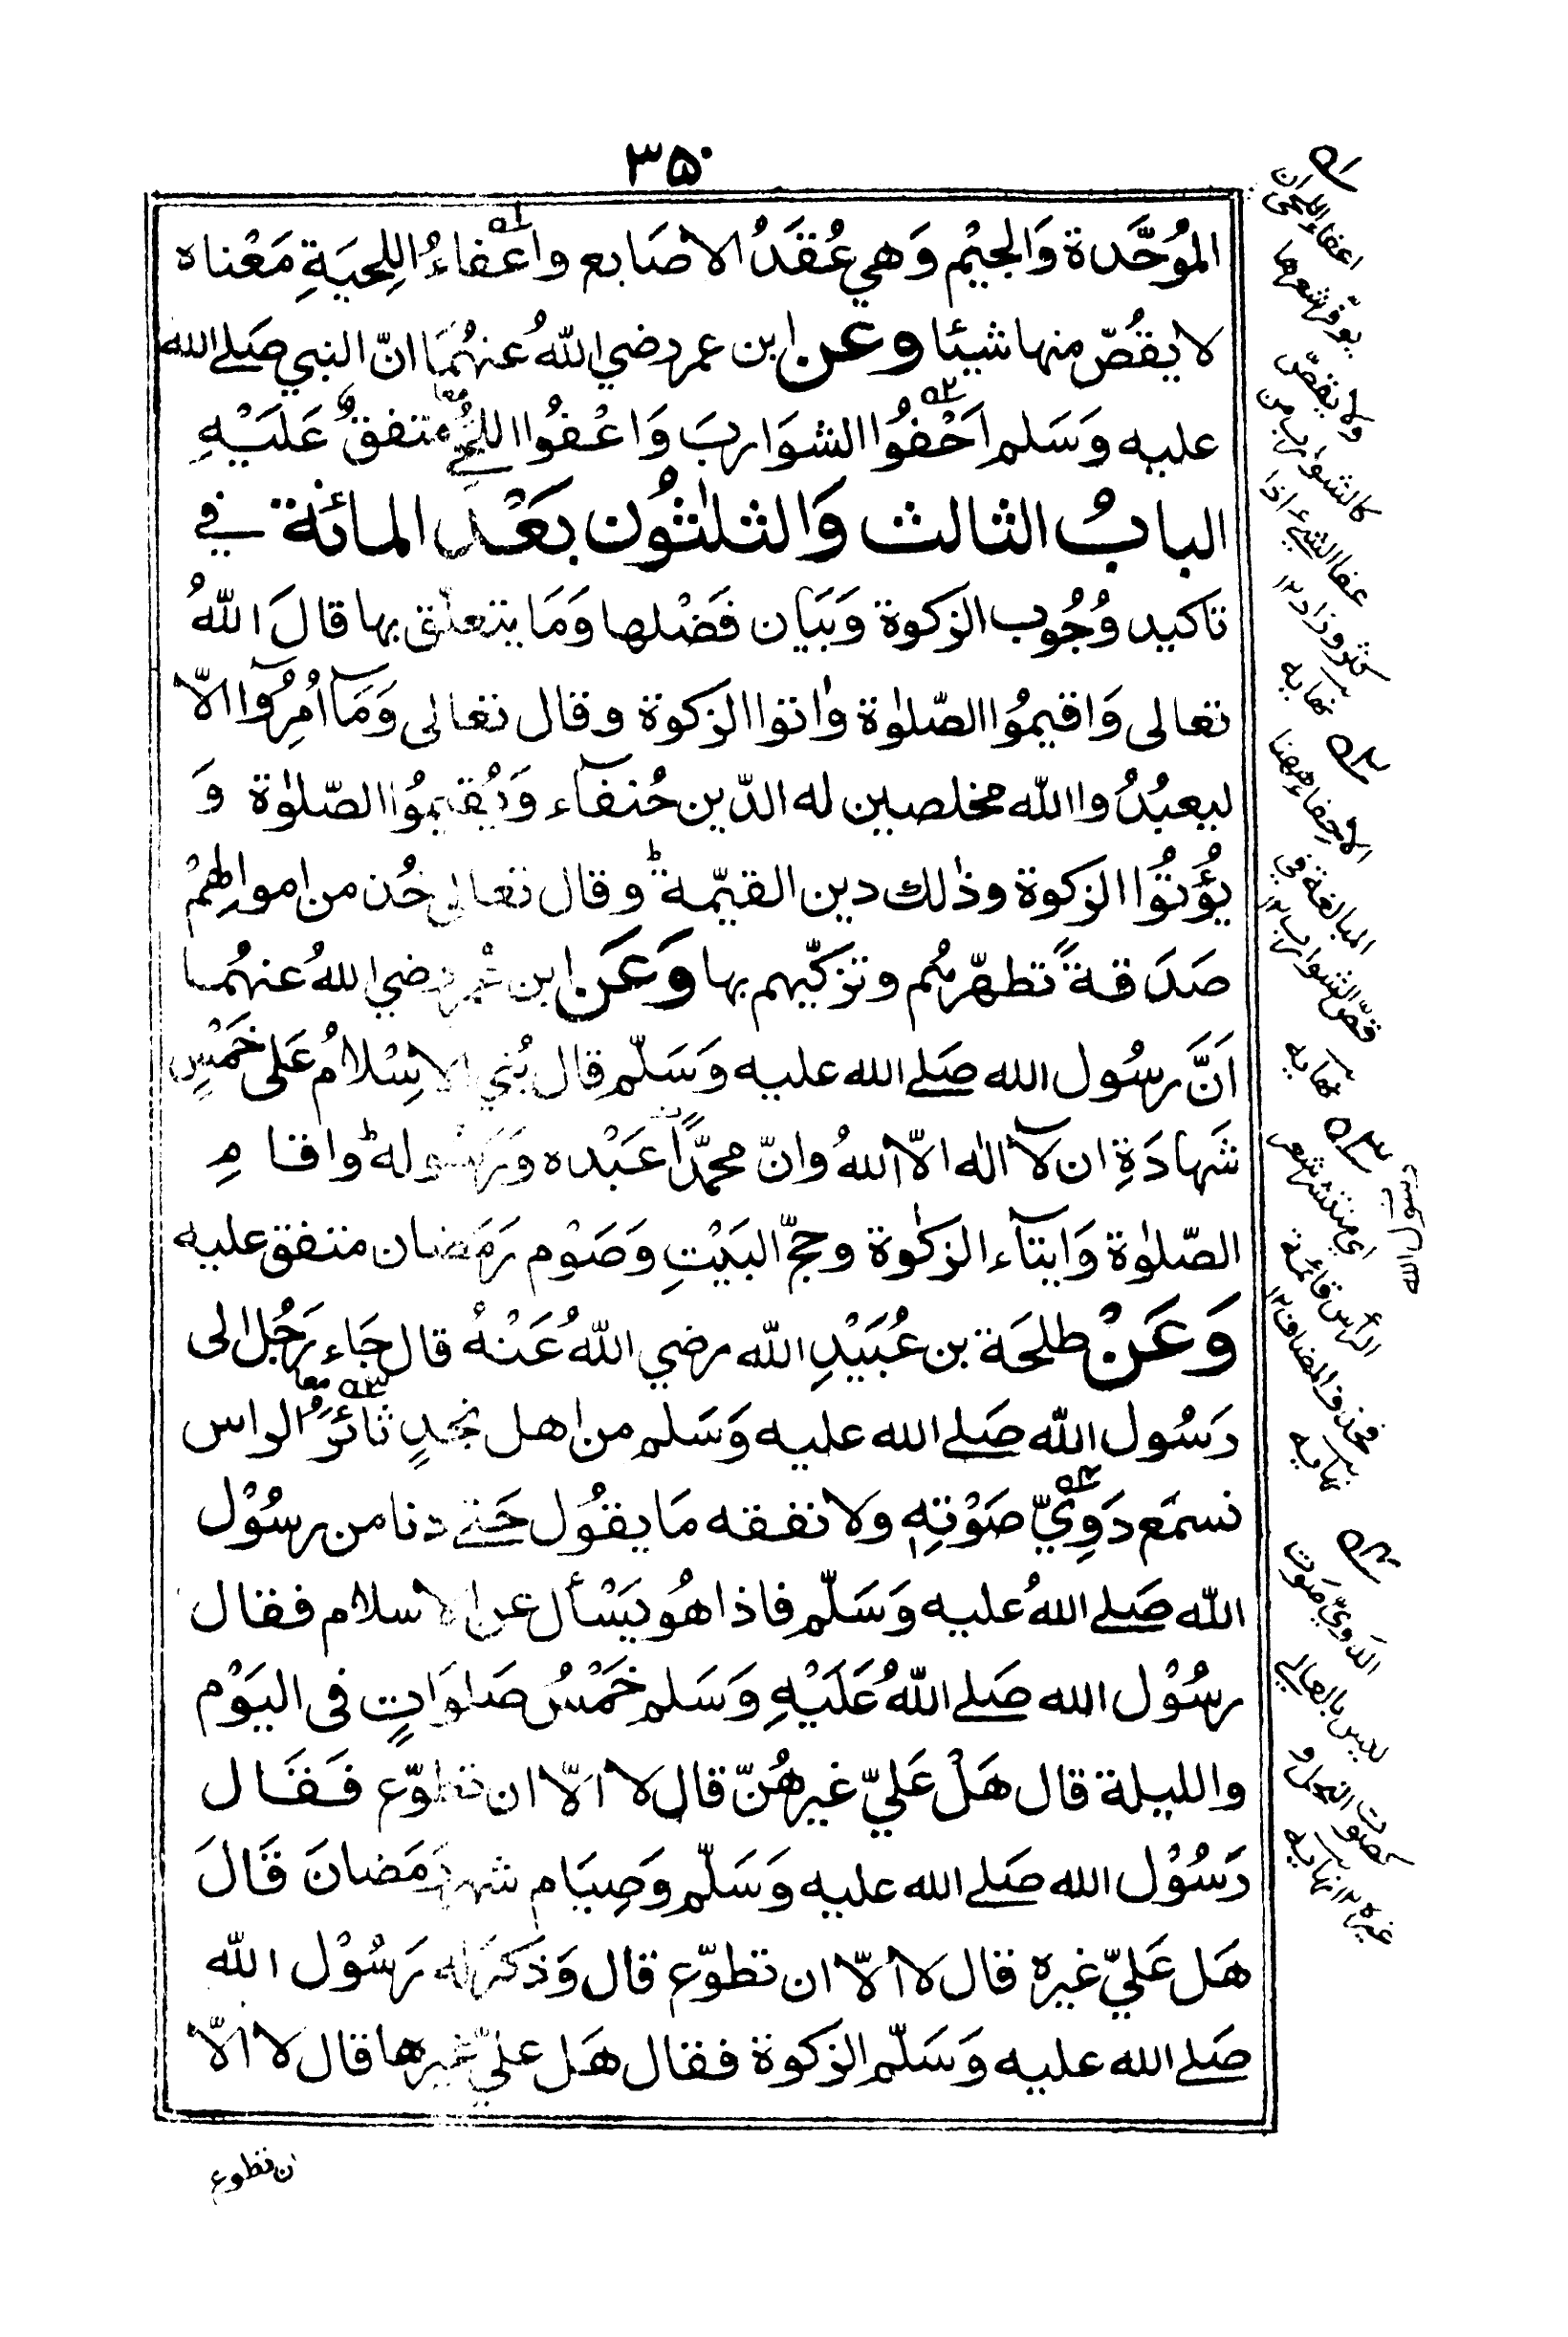 ۳۵۰
المُوُحَّدة وَالجيْم وَهي عُقَدُ الاصَابع واعْفاءُ اللِحيَةِ مَعْناه
لا يقُصّ منها شيئا وعن ابن عمر رضي اللهُ عنهُمَا انّ النبي صَلے الله
عليه وَسَلم اَحْفُوا الشوَاربَ وَاعْفُوا اللُّحےٰ متفقٌ عَلَيْهِ
البابُ الثالث وَالثلٰثوُن بَعْد المائة في
تاكيد وُجُوب الزكوة وَبَيَان فَضْلها وَمَا يتعلّق بها قالَ اللهُ
تعالى وَاقيمُوا الصّلوٰة وٰاتوا الزكوة وقال تعالى وَمَآ اُمِرُوآ الّا
ليعبُدُوا الله مخلصين له الدّين حُنفآء وَيُقيمُوا الصّلوٰة وَ
يُؤتُوا الزكوة وذٰلك دين القيّمة ؕ وقال تعالى خُذ من اموالِهِمْ
صَدَقةً تطهّرهُم وتزكّيهم بها وَعَن ابن عُمر رضي اللهُ عنهُما
اَنَّ رسُول الله صَلے الله عليه وَسَلّم قال بُني الاِسْلامُ عَلى خَمْسٍ
شَهادَةِ ان لآ اله الّا اللهُ وانّ محمّدًا عَبْده وَرَسُوله ؕ واقامِ
الصّلوٰة وَايتآء الزكٰوة وحجّ البَيْتِ وَصَوْم رَمَضان متفق عليه
وَعَنْ طلحَة بن عُبَيْدِ الله رضي اللهُ عَنْهُ قال جَاء رَجُل الى
رَسُول الله صَلے الله عليه وَسَلم من اهل نجدٍ ثائرُ الراس
نسمَع دَوِيّ صَوْتِهٖ ولا نفقه مَا يقُول حَتے دنا من رسُوْل
الله صَلے اللهُ عليه وَسَلّم فاذا هُو يَسْأل عن الاسلام فقال
رسُوْل الله صَلے اللهُ عَلَيْهِ وَسَلم خَمْسُ صَلوَاتٍ فى اليَوْم
والليلة قال هَلْ عَليّ غيرهُنّ قال لا الّا ان تطوّع فَقَال
رَسُوْل الله صَلے الله عليه وَسَلّم وَصِيَام شهر رَمَضانَ قَالَ
هَل عَليّ غيره قال لا الّا ان تطوّع قال وَذكرَ له رَسُوْل الله
صَلے الله عليه وَسَلّم الزكوة فقال هَل عليّ غيرها قال لا الّا
ان تطوع
٥١
اعفاء اللحى ان
يوفّر شعرها
ولا يقصّ
كالشوارب من
عفا الشيء اذا
كثر وزاد ١٢
نهايه
٥٢
الاحِفاء ههنا
المبالغة في
قصّ الشوارب ١٢
نهايه
٥٣
اي منتشر شعر
الرأس قائمة
فحذف المضاف ١٢
نهايه
٥٤
الدَويّ صَوت
ليس بالعالي
كصوت النحل و
غيره ١٢ نهايه